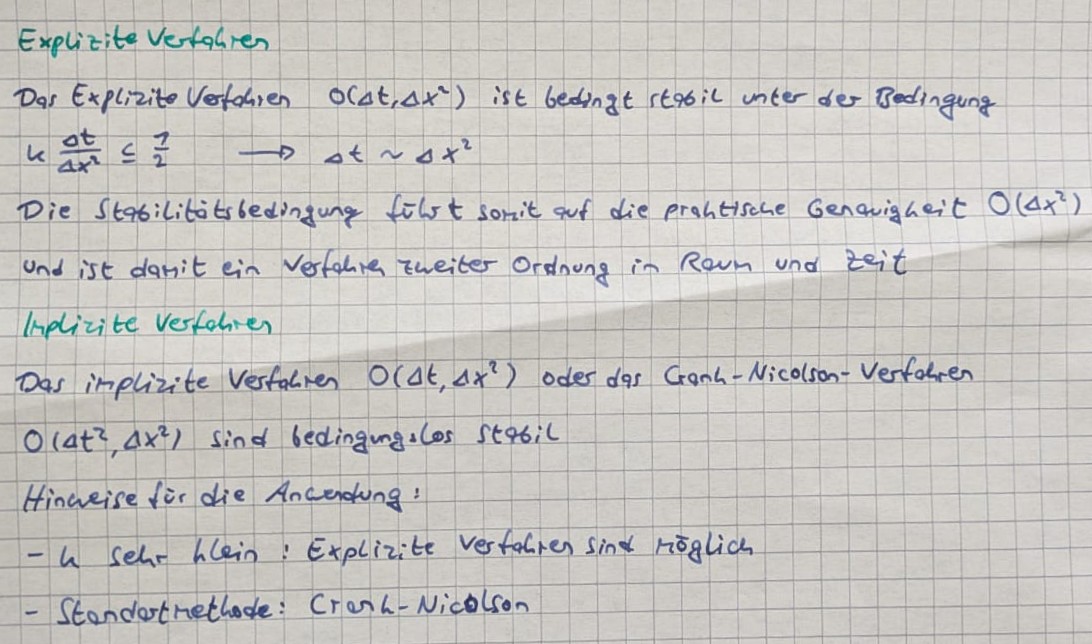 Explizite Verfahren
Das Explizite Verfahren O(Δt, Δx²) ist bedingt stabil unter der Bedingung
k Δt/Δx² ≤ 1/2 → Δt ~ Δx²
Die Stabilitätsbedingung führt somit auf die praktische Genauigkeit O(Δx²)
und ist damit ein Verfahren zweiter Ordnung in Raum und Zeit
Implizite Verfahren
Das implizite Verfahren O(Δt, Δx²) oder das Crank-Nicolson-Verfahren
O(Δt², Δx²) sind bedingungslos stabil
Hinweise für die Anwendung:
- k sehr klein: Explizite Verfahren sind möglich
- Standartmethode: Crank-Nicolson